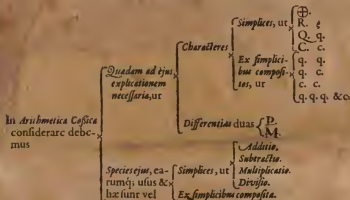 In Arithmetica Cossica
considerare debe-
mus
Quædam ad ejus
explicationem
necessaria, ut
Characteres
Simplices, ut
R.
Q. q.
C. c.
Ex simplici-
bus composi-
tos, ut
q. q.
q. c.
c. c.
q. q. q. &c
Differentias duas
P.
M.
Species ejus, ea-
rumq; usus &
hæ sunt vel
Simplices, ut
Additio.
Subtractio.
Multiplicatio.
Divisio.
Ex simplicibus composita.